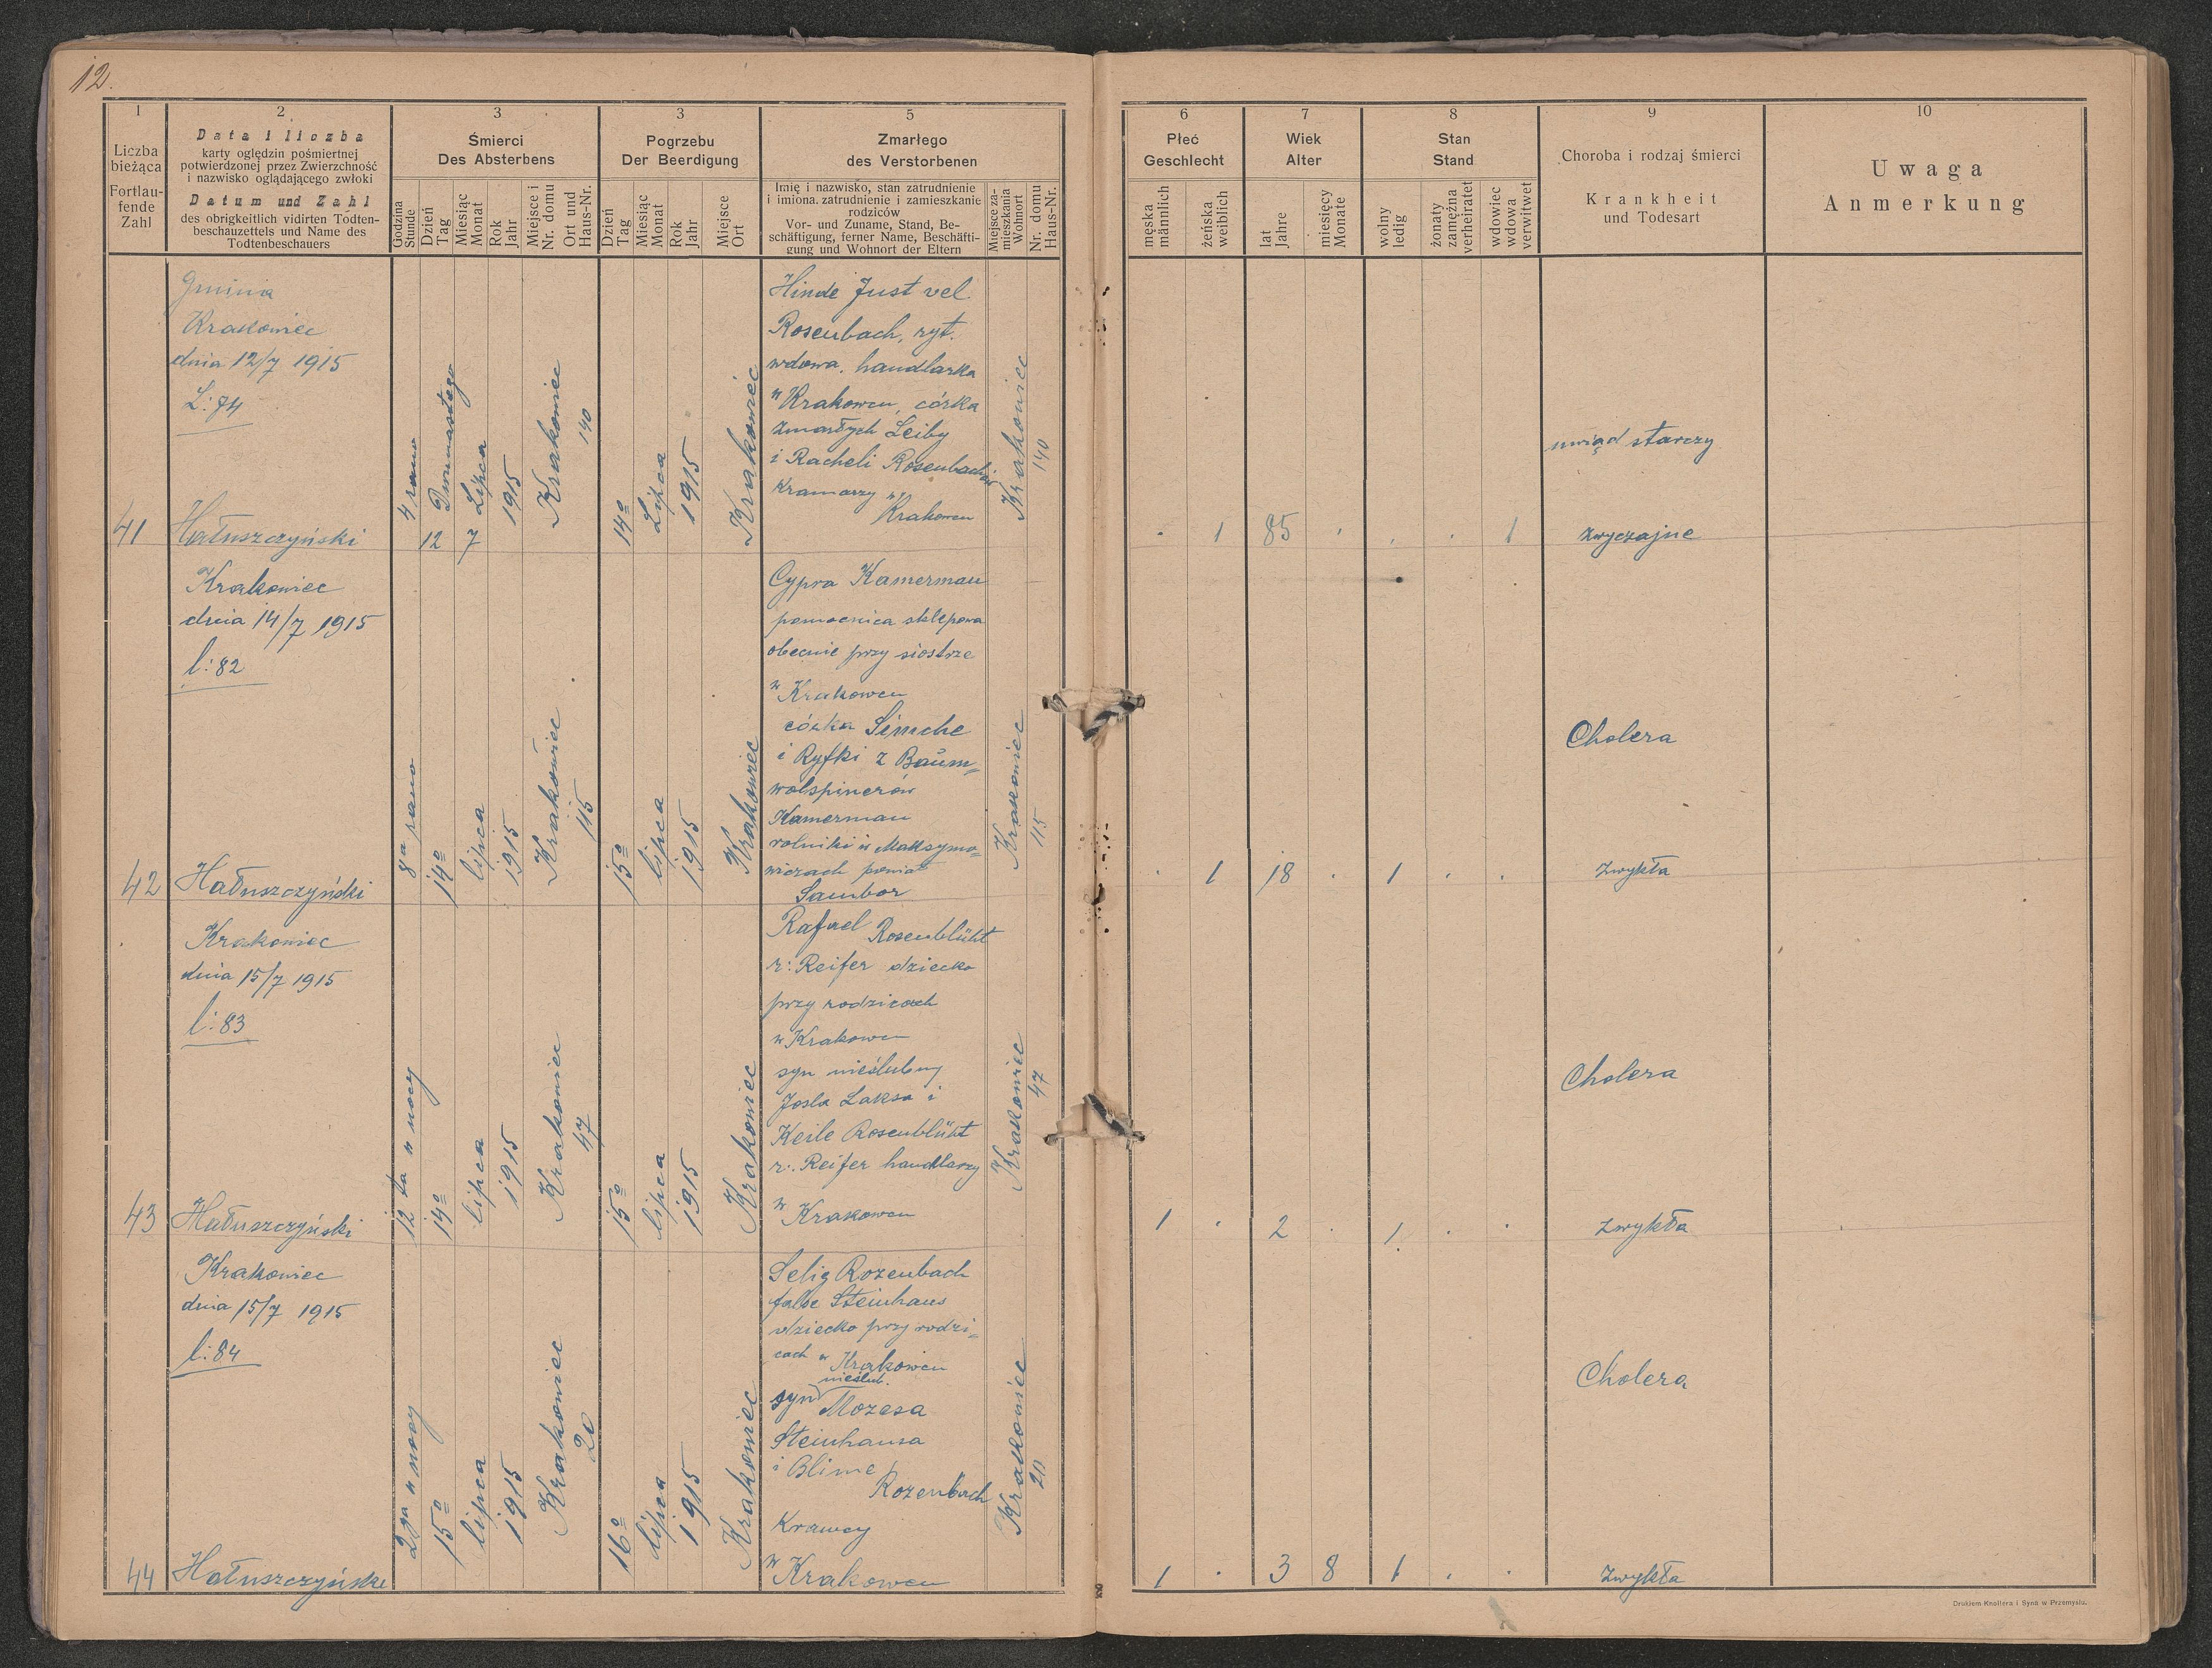 12.
1
Liczba
bieżąca
Fortlau-
fende
Zahl
2
Data i liczba
karty oględzin pośmiertnej
potwierdzonej przez Zwierzchność
i nazwisko oglądającego zwłoki
Datum und Zahl
des obrigkeitlich vidirten Todten-
beschauzettels und Name des
Todtenbeschauers
3
Śmierci
Des Absterbens
Godzina
Stunde
Dzień
Tag
Miesiąc
Monat
Rok
Jahr
Miejsce i
Nr. domu
Ort und
Haus-Nr.
3
Pogrzebu
Der Beerdigung
Dzień
Tag
Miesiąc
Monat
Rok
Jahr
Miejsce
Ort
5
Zmarłego
des Verstorbenen
Imię i nazwisko, stan zatrudnienie
i imiona, zatrudnienie i zamieszkanie
rodziców
Vor- und Zuname, Stand, Be-
schäftigung, ferner Name, Beschäfti-
gung und Wohnort der Eltern
Miejsce za-
mieszkania
Wohnort
Nr. domu
Haus-Nr.
6
Płeć
Geschlecht
męska
männlich
żeńska
weiblich
7
Wiek
Alter
lat
Jahre
miesięcy
Monate
8
Stan
Stand
wolny
ledig
żonaty
zamężna
verheiratet
wdowiec
wdowa
verwitwet
9
Choroba i rodzaj śmierci
Krankheit
und Todesart
10
Uwaga
Anmerkung
41
Gmina
Krakowiec
dnia 12/7 1915
L: 74
Hałuszczyński
4 rano
Dwunastego
12
Lipca
7
1915
Krakowiec
140
14º
Lipca
1915
Krakowiec
Hinde Just vel
Rosenbach, ryt.
wdowa, handlarka
w Krakowcu, córka
zmarłych Leiby
i Racheli Rosenbachów
kramarzy w
Krakowcu
Krakowiec
140
. 1 85 . . . 1
uwiąd starczy
zwyczajne
42
Krakowiec
dnia 14/7 1915
l: 82
Hałuszczyński
8ª rano
14º
lipca
1915
Krakowiec
115
15º
lipca
1915
Krakowiec
Cypra Kamerman
pomocnica sklepowa
obecnie przy siostrze
w Krakowcu
córka Simche
i Ryfki z Baum=
wolspinerów
Kamerman
rolniki w Maksymo=
wiczach powiat
Sambor
Krakowiec
115
. 1 18 . 1 . .
Cholera
zwykła
43
Krakowiec
dnia 15/7 1915
l: 83
Hałuszczyński
12 ta w nocy
14º
lipca
1915
Krakowiec
47
15º
lipca
1915
Krakowiec
Rafael Rosenblüht
r: Reifer dziecko
przy rodzicach
w Krakowcu
syn nieślubny
Josla Laksa i
Keile Rosenblüht
r: Reifer handlarzy
w Krakowcu
Krakowiec
47
1 . 2 . 1 . .
Cholera
zwykła
44
Krakowiec
dnia 15/7 1915
l: 84
Hałuszczyński
2ga w nocy
15º
lipca
1915
Krakowiec
20
16º
lipca
1915
Krakowiec
Selig Rozenbach
false Steinhaus
dziecko przy rodzi=
cach w Krakowcu
nieślub.
syn Mozesa
Steinhausa
i Blime
Rozenbach
Krawcy
w Krakowcu
Krakowiec
20
1 . 3 8 1 . .
Cholera
zwykła
Drukiem Knollera i Syna w Przemyślu.